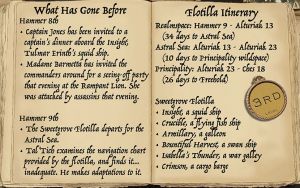 What Has Gone Before
Hammer 8th
• Captain Jones has been invited to a
captain's dinner aboard the Insight,
Tulmar Erinth's squid ship.
• Madame Barmetta has invited the
commanders around for a seeing off party
that evening at the Rampant Lion. She
was attacked by assassins that evening.
Hammer 9th
• The Sweetgrove Flotilla departs for the
Astral Sea.
• Tal'Tich examines the navigation chart
provided by the flotilla, and finds it...
inadequate. He makes adaptations to it.
Flotilla Itinerary
Realmspace: Hammer 9 - Alturiak 13
(34 days to Astral Sea)
Astral Sea: Alturiak 13 - Alturiak 23
(10 days to Principality wildspace)
Principality: Alturiak 23 - Ches 18
(26 days to Freehold)
Sweetgrove Flotilla
• Insight, a squid ship
• Crucible, a flying fish ship
• Armillary, a galleon
• Bountiful Harvest, a swan ship
• Isabella's Thunder, a war galley
• Crimson, a cargo barge
3RD